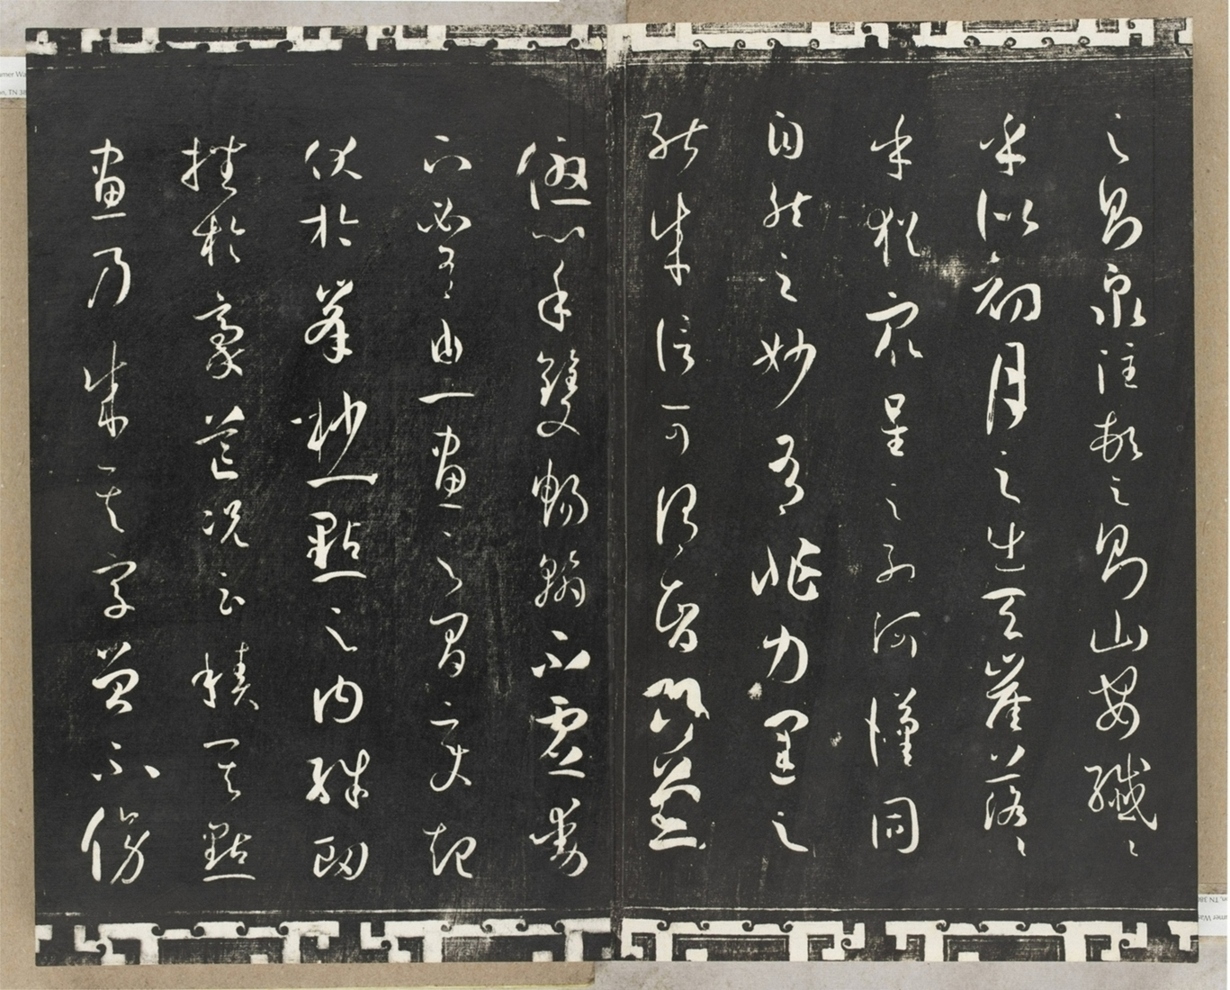 之則泉注頓之則山安纖〻
乎似初月之出天崖落〻
乎猶衆星之列河漢同
自然之妙有非力運之
能成信可謂智巧兼
優心手雙暢翰不虛動
下必有由一畫之間變起
伏於峯杪一點之內殊衄
挫於豪芒況云積其點
畫乃成其字曾不傍